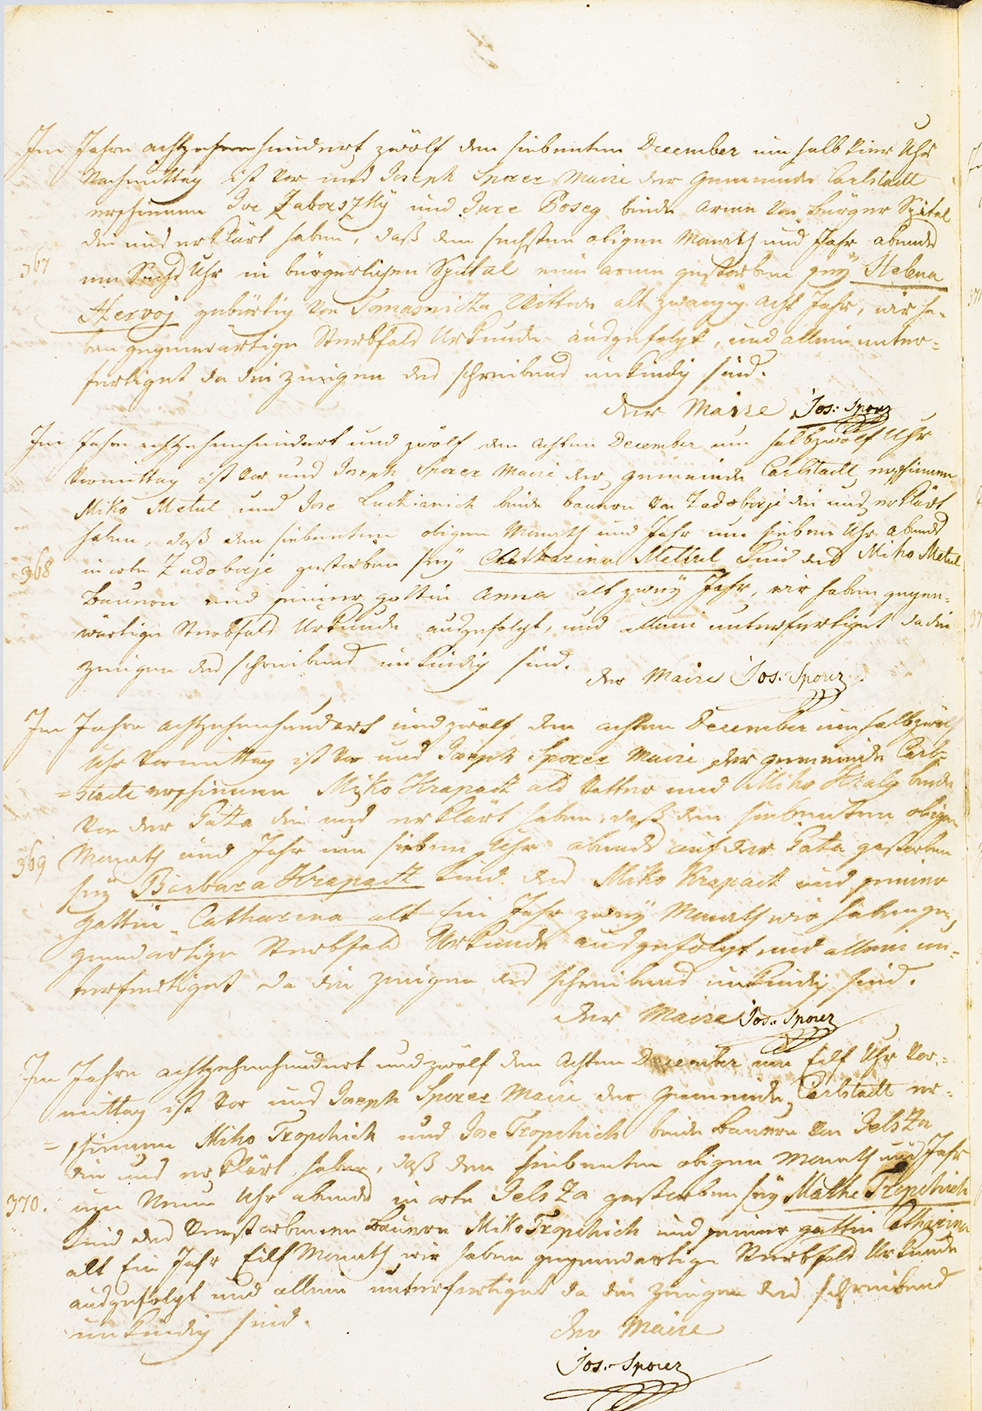 Im Jahre achtzehenhundert zwölf den siebenten December um halb vier Uhr
Nachmittag ist vor uns Joseph Sporer Maire der Gemeinde Carlstadt
erschienen Ive Zaborszky und Jure Poseg beide arme von Bürger Spital
die uns erklärt haben, daß den sechsten obigen Monath und Jahr abends
367
um Sechs Uhr in bürgerlichen Spital eine arme gestorben sey Helena
Hervoj gebürtig von Tomasnicza Wittwe alt zwanzig acht Jahr, wir ha-
ben gegenwärtige Sterbfalls Urkunde ausgefolgt, und allein unter-
fertiget da die Zeugen des schreibens unkündig sind.
der Maire Jos: Sporer
Im Jahre achtzehenhundert und zwölf den achten December um halbzwölf Uhr
Vormittag ist vor uns Joseph Sporer Maire der Gemeinde Carlstadt erschienen
Miko Metul und Ive Luckianich beide Bauern von Zadobarje die uns erklärt
haben, daß den siebenten obigen Monath und Jahr um sieben Uhr abends
368
in orte Zadobarje gestorben sey Catharina Metul Kind des Miko Metul
Bauern und seiner gattin Anna alt zwey Jahr, wir haben gegen-
wärtige Sterbfalls Urkunde ausgefolgt, und allein unterfertiget da die
zeugen des schreibens unkündig sind.
der Maire Jos: Sporer
Im Jahre achtzehenhundert und zwölf den achten December um halbzwölf
Uhr Vormittag ist vor uns Joseph Sporer Maire der Gemeinde Carl-
=stadt erschienen Miko Krapach als Vatter und Miko Kralj beide
von der Gaza die uns erklärt haben, daß den siebenten obigen
369
Monath und Jahr um sieben Uhr abends auf der Gaza gestorben
sey Barbara Krapach Kind des Miko Krapach und seiner
gattin Catharina alt Ein Jahr zwey Monath wir haben ge-
genwärtige Sterbfalls Urkunde ausgefolgt und allein un-
terfertiget da die zeugen des schreibens unkündig sind.
der Maire Jos: Sporer
Im Jahre achtzehenhundert und zwölf den achten December um Eilf Uhr Vor-
mittag ist vor uns Joseph Sporer Maire der Gemeinde Carlstadt er-
=schienen Miko Tropchich und Ive Tropchich beide Bauern von Jelsza
die uns erklärt haben, daß den siebenten obigen Monath und Jahr
370.
um Neun Uhr abends in orte Jelsza gestorben sey Mathe Tropchich
Kind des Verstorbenen Bauern Miko Tropchich und seiner gattin Catharina
alt Ein Jahr Eilf Monath, wir haben gegenwärtige Sterbfalls Urkunde
ausgefolgt und allein unterfertiget da die zeugen des schreibens
unkündig sind.
der Maire
Jos: Sporer